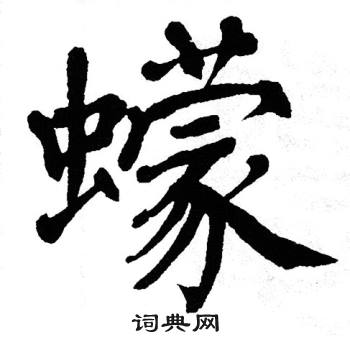 蠓
词典网